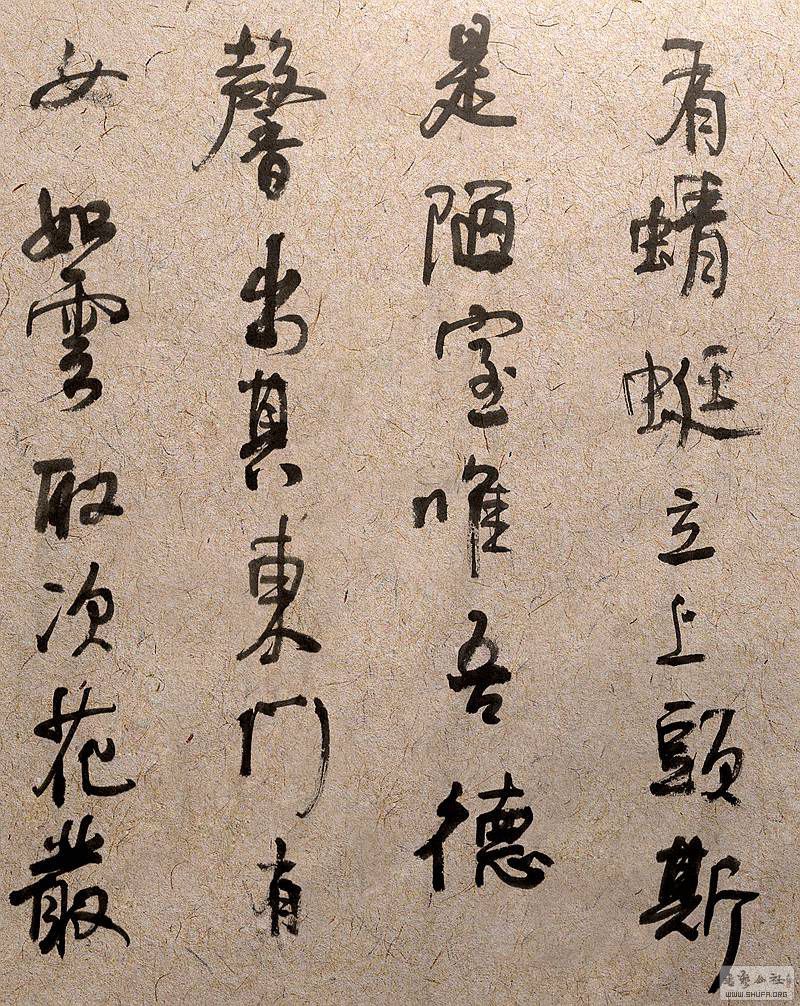 有蜻蜓立上頭斯
是陋室唯吾德
馨出其東門有
女如雲取次花叢
WWW.SHUFA.ORG